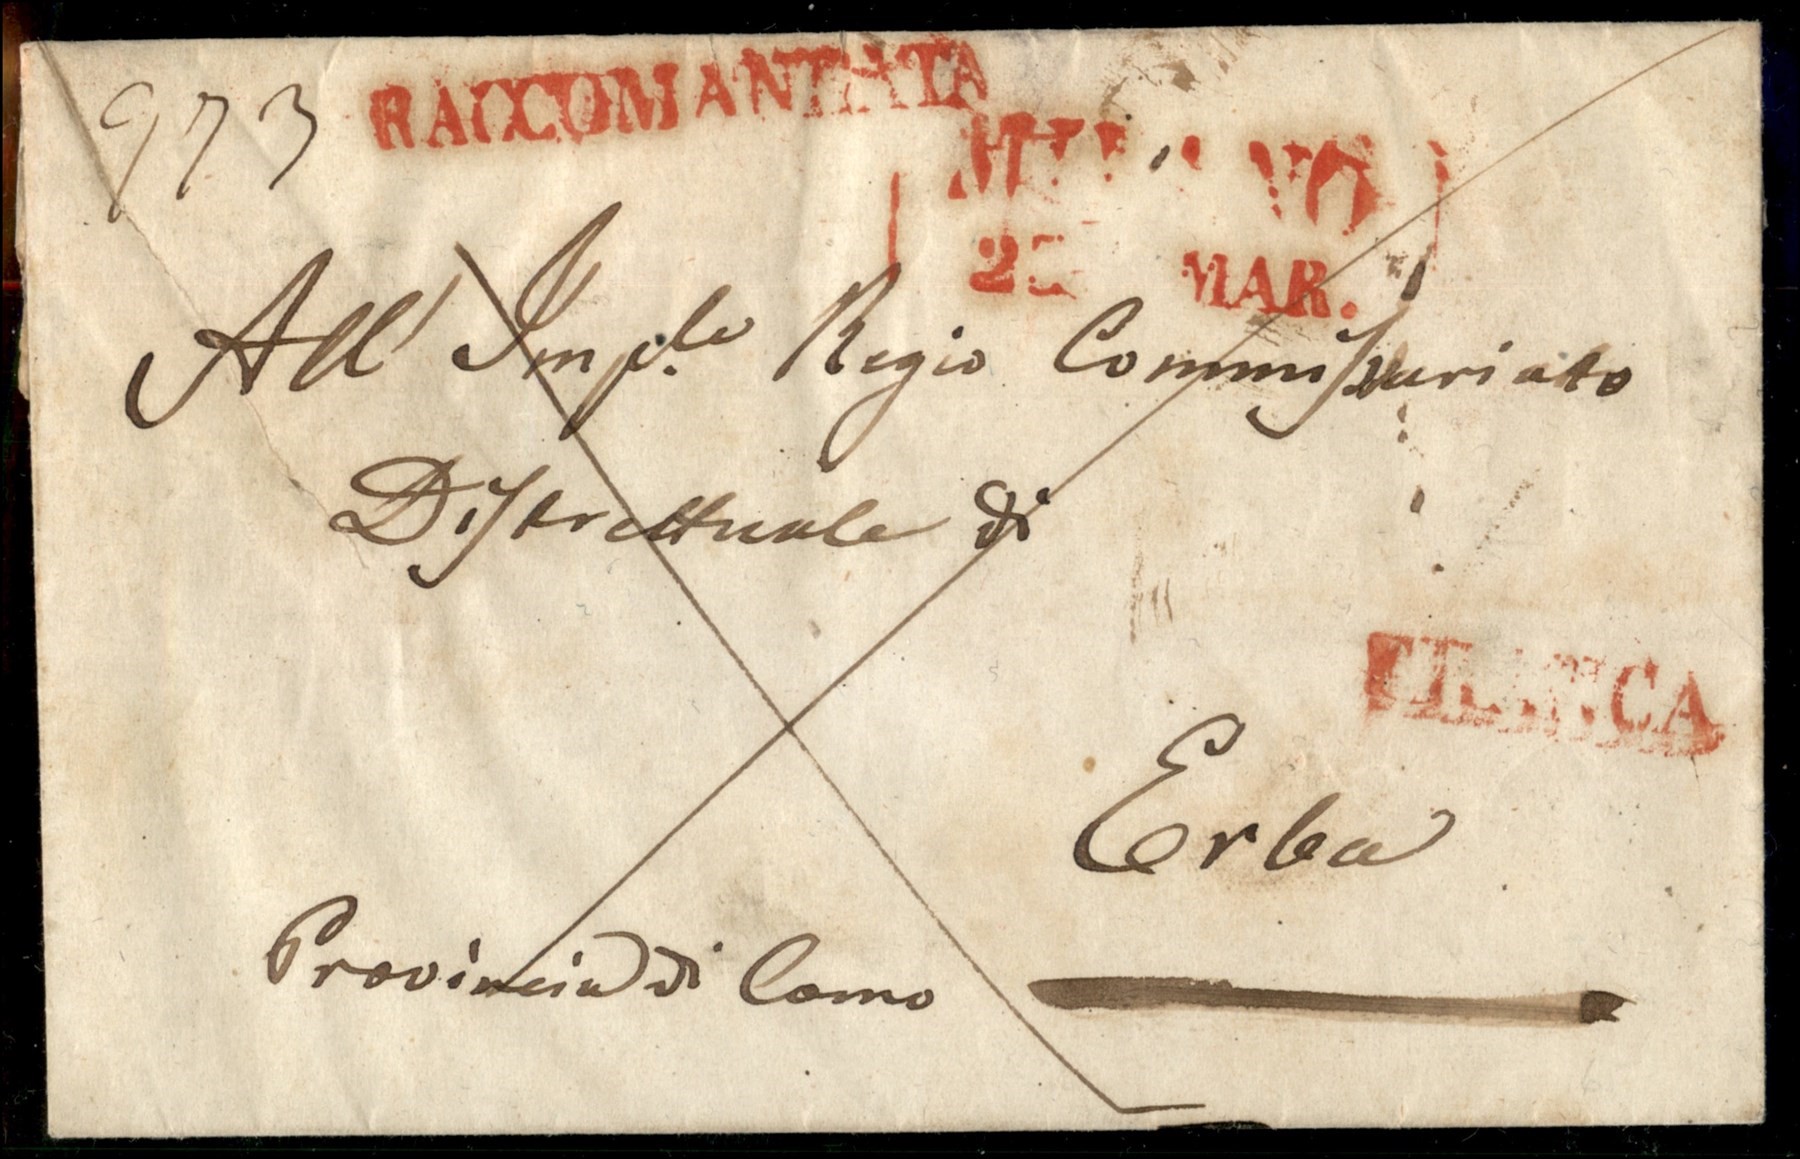 973 RACCOMANDATA
MILANO
MAR.
All' Imp.le Regio Commissariato
Distrettuale di
Erba
Provincia di Como